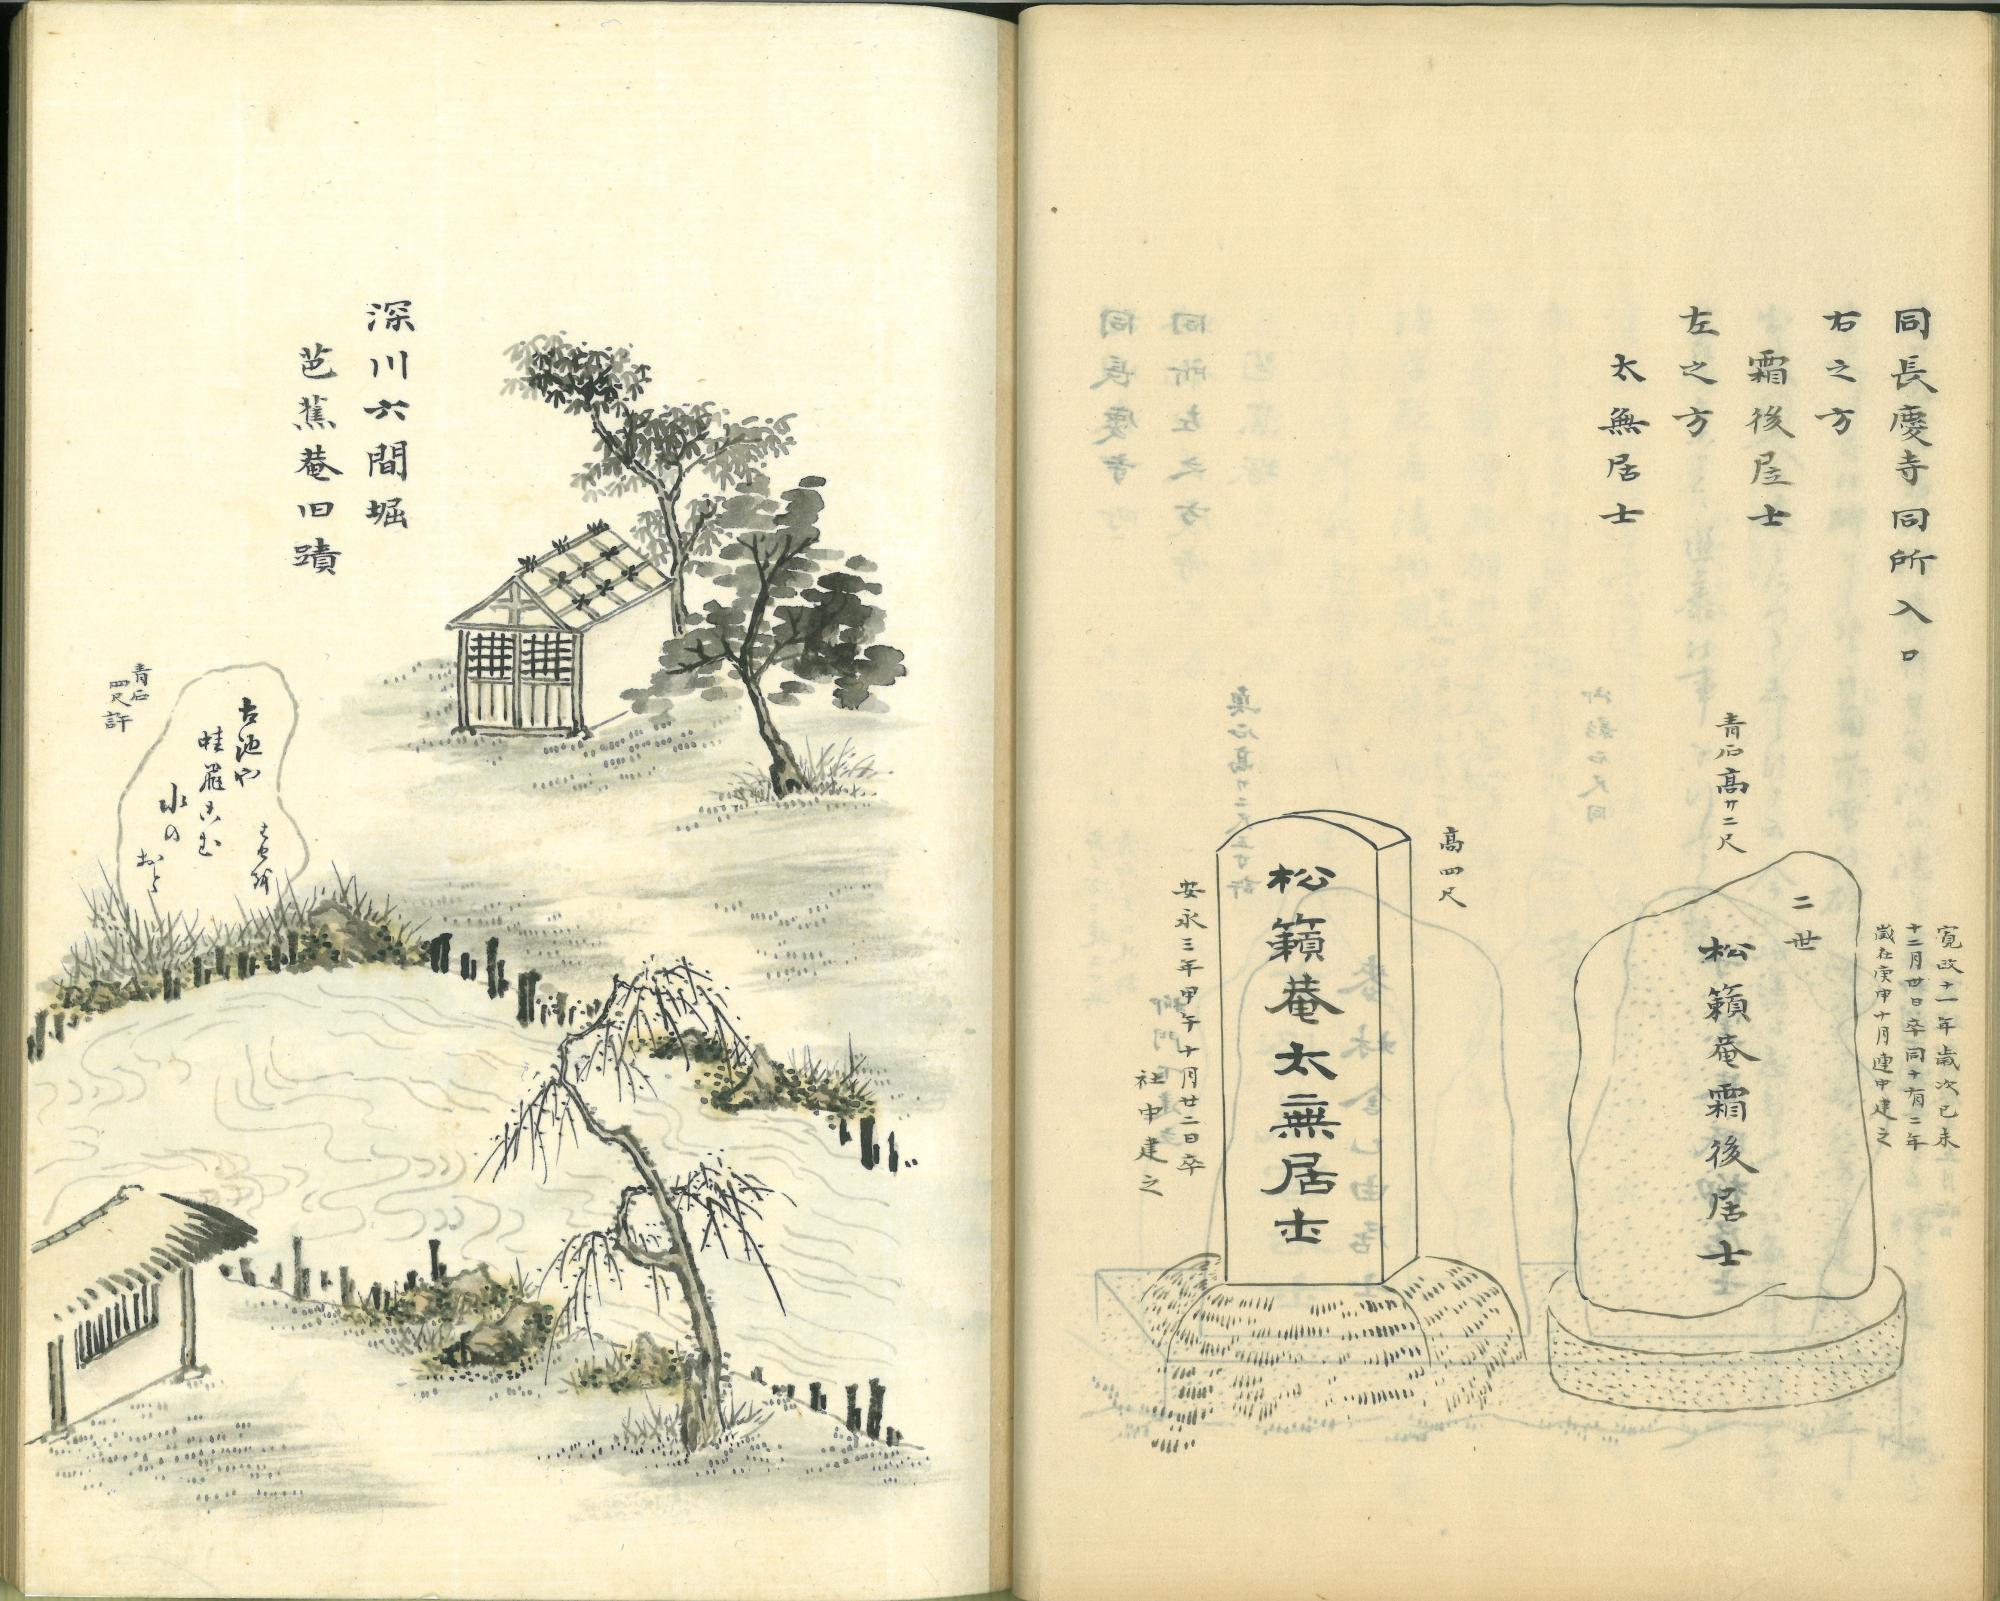 同長慶寺同所入口
右之方
霜後居士
左之方
太無居士
寛政十一年歳次己未
十二月廿日卒同十有二年
歳在庚申十月連中建之
青石高サ二尺
二世
松籟菴霜後居士
高四尺
松籟菴太無居士
安永三年甲午十月廿二日卒
社中建之
深川六間堀
芭蕉菴旧蹟
青石
四尺許
古池や
蛙飛こむ
水の
おと